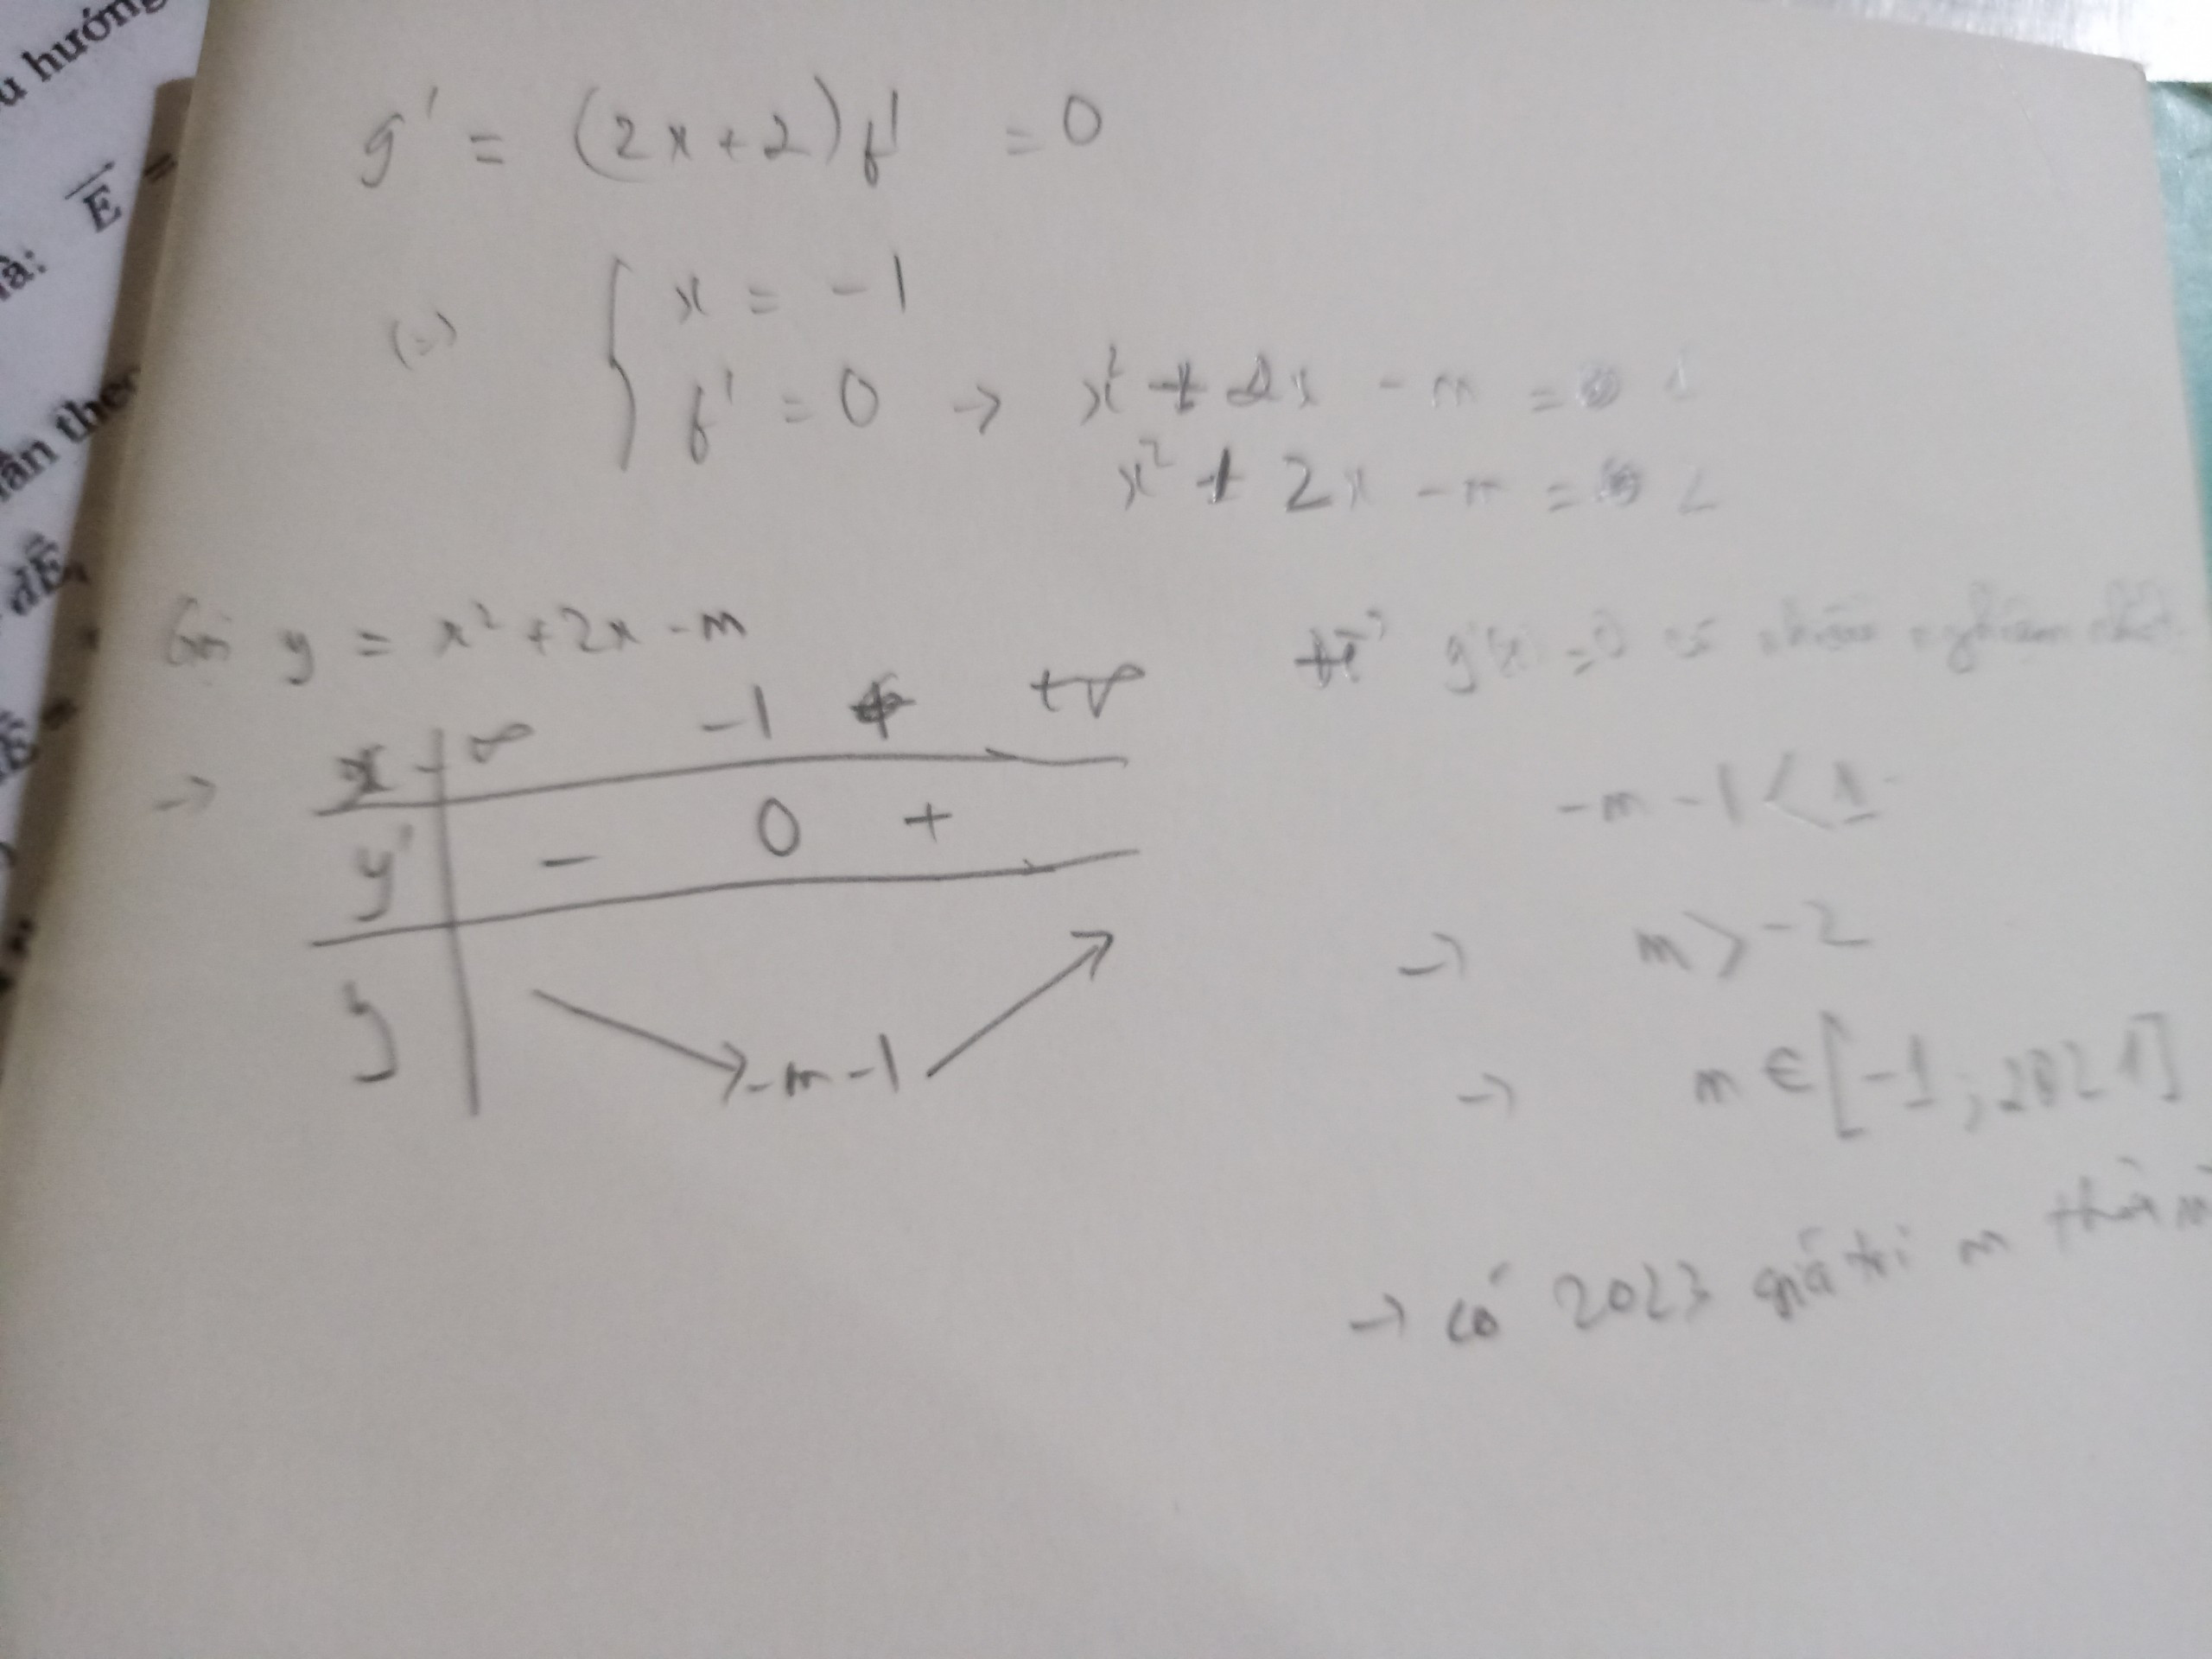 u hướng
E =
là:
ần theo
dE,
g' = (2x+2) f' = 0
(=) { x = -1
f' = 0 → x² + 2x - m = 1
x² + 2x - m = 2
Gọi y = x² + 2x - m
→ x -∞ -1 +∞
y' - 0 +
y -m-1
để g'(x) = 0 có nhiều nghiệm nhất
-m-1 < 1
→ m > -2
→ m ∈ [-1; 2021]
→ có 2023 giá trị m thỏa